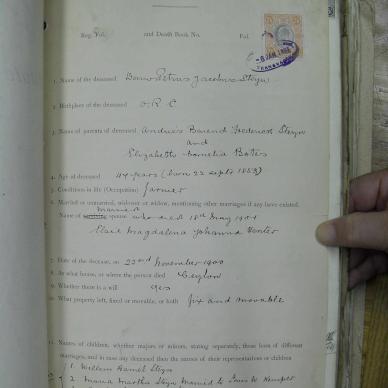 Reg. Vol. and Death Book No. Fol.
-8 JAN 1903
TRANSVAAL
1. Name of the deceased Petrus Jacobus Steyn
2. Birthplace of the deceased O.R.C
3. Name of parents of deceased Andries Barend Frederick Steyn
and
Elizabeth Cornelia Botes
4. Age at deceased 44 years (born 22 Sept
5. Condition in life (Occupation) farmer
6. Married or unmarried, widower or widow, mentioning other marriages if any have existed.
married
Name of spouse who died 18th May 1901
Elsie Magdalena Johanna Venter
7. Date of the decease, on 22nd November 1900
8. At what house, or where the person died Ceylon
9. Whether there is a will yes
10. What property left, fixed or movable, or both fix and movable
11. Names of children, whether majors or minors, stating separately, those born of different
marriages, and in case any deceased then the names of their representatives or children
1. Willem Hamel Steyn
2. Maria Martha Steyn Married to Louis